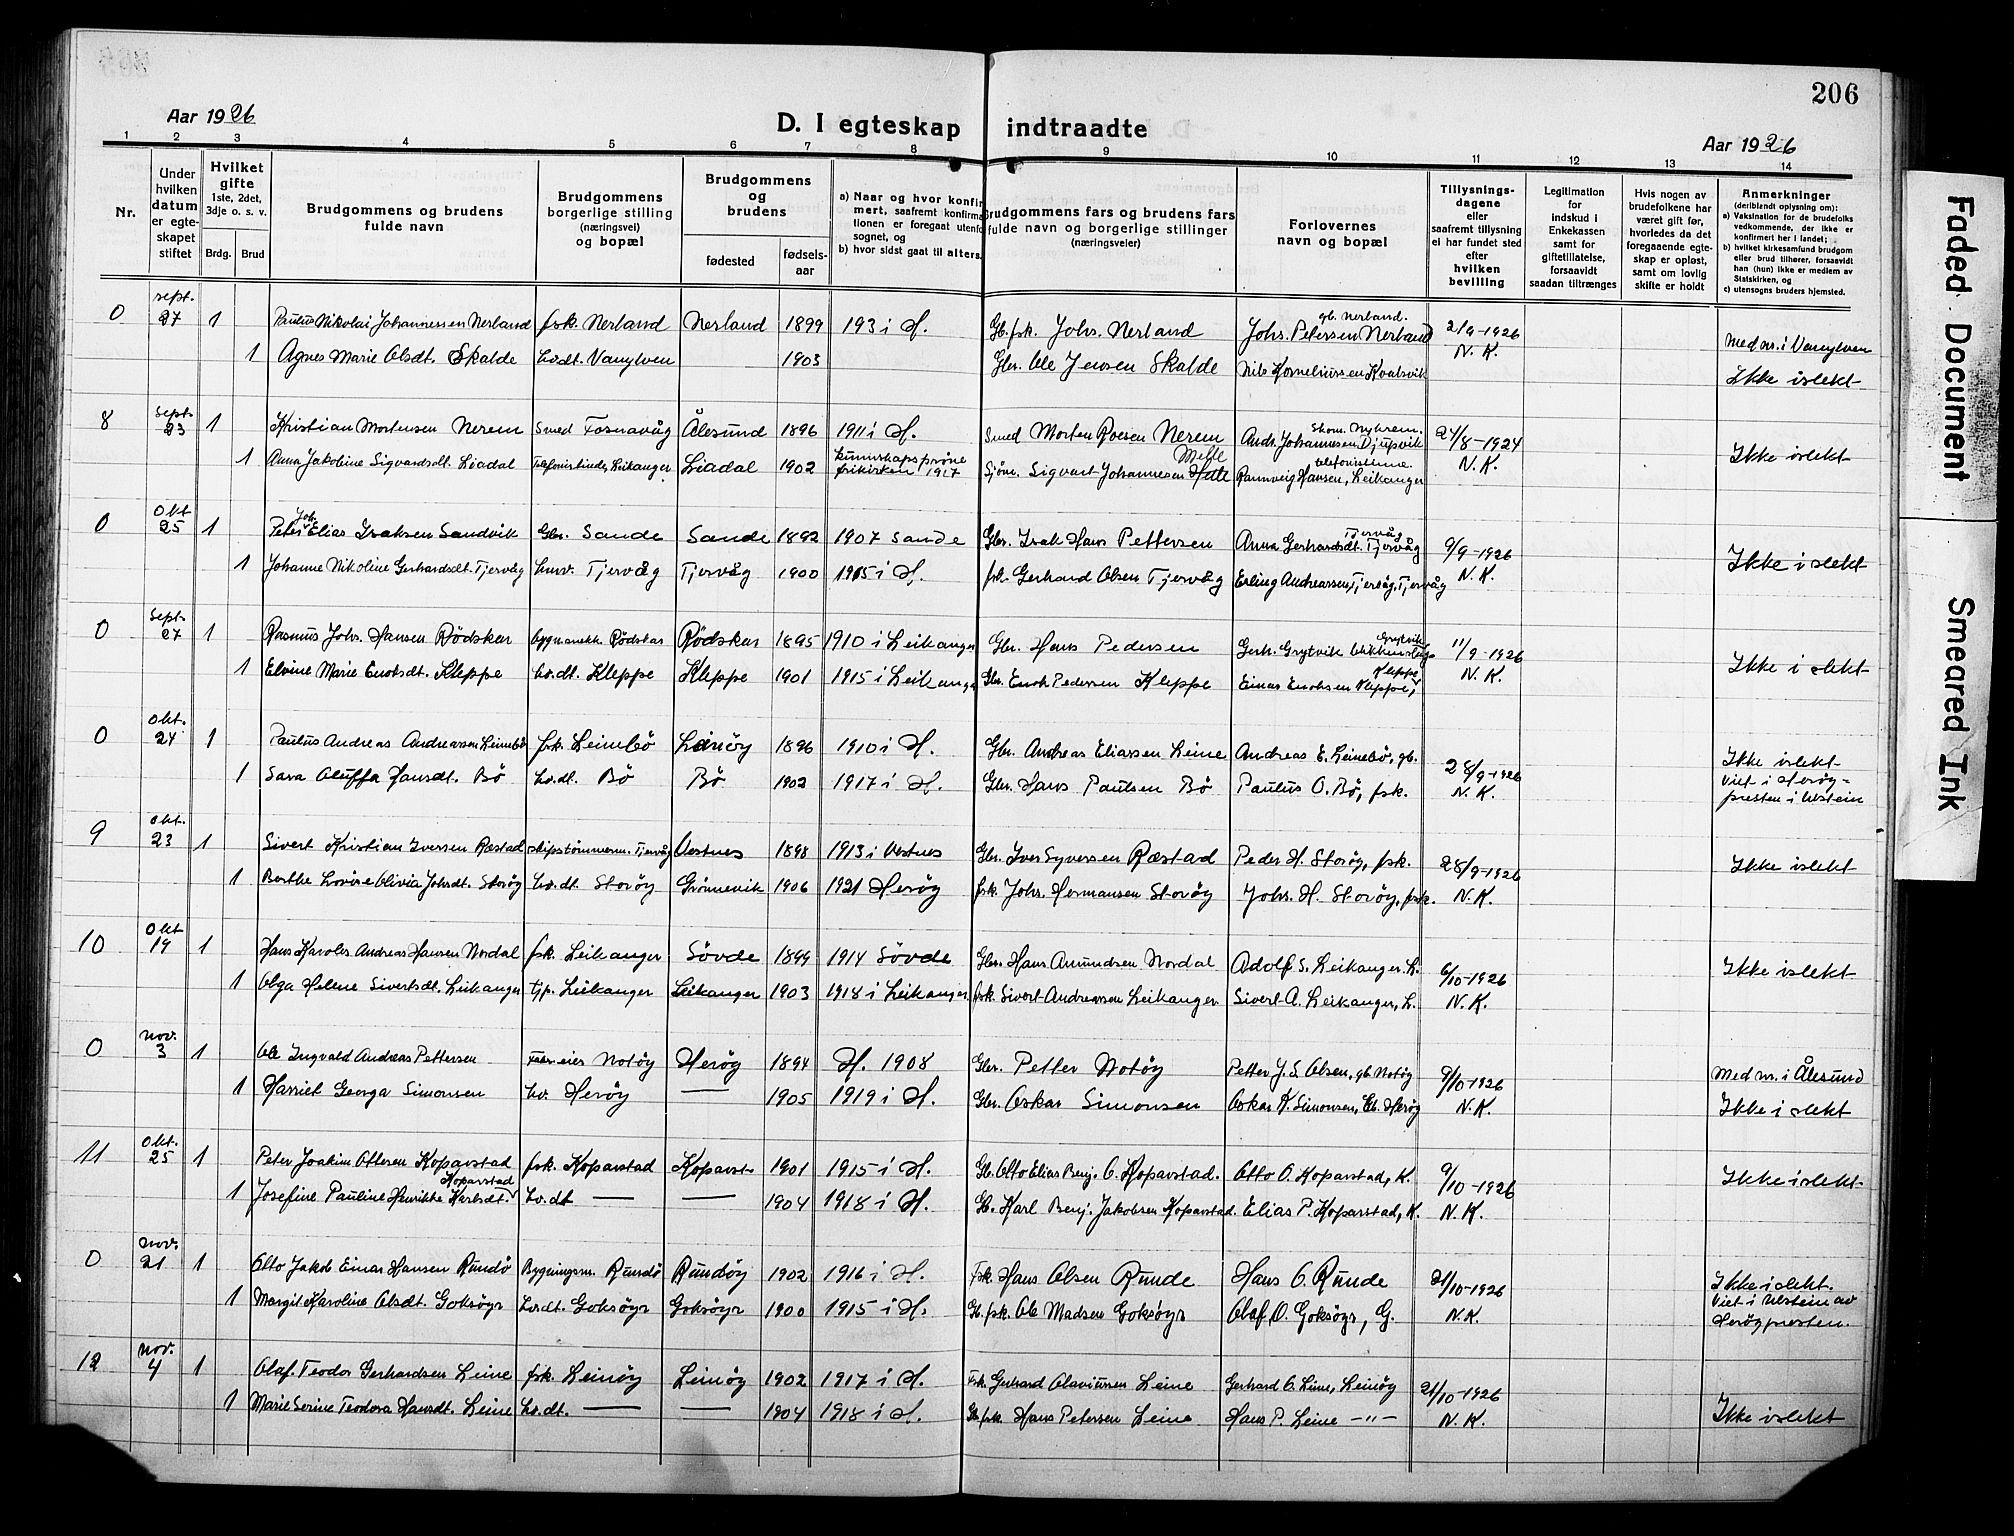 206
Aar 1926
D. I egteskap indtraadte
Aar 1926
1 2 3 4 5 6 7 8 9 10 11 12 13 14
Nr.
Under hvilken datum er egteskapet stiftet
Hvilket gifte 1ste, 2det, 3dje o. s. v.
Brdg. Brud
Brudgommens og brudens fulde navn
Brudgommens borgerlige stilling (næringsvei) og bopæl
Brudgommens og brudens
fødested
fødsels-aar
a) Naar og hvor konfirmert, saafremt konfirmationen er foregaat utenfor sognet, og
b) hvor sidst gaat til alters.
Brudgommens fars og brudens fars fulde navn og borgerlige stillinger (næringsveier)
Forlovernes navn og bopæl
Tillysnings-dagene eller saafremt tillysning ei har fundet sted efter hvilken bevilling
Legitimation for indskud i Enkekassen samt for giftetillatelse, forsaavidt saadan tiltrænges
Hvis nogen av brudefolkene har været gift før, hvorledes da det foregaaende egteskap er opløst, samt om lovlig skifte er holdt
Anmerkninger (deriblandt oplysning om):
a) Vaksination for de brudefolks vedkommende, der ikke er konfirmert her i landet;
b) hvilket kirkesamfund brudgom eller brud tilhører, forsaavidt han (hun) ikke er medlem av Statskirken, og
c) utensogns bruders hjemsted.
0 sept. 27 1 Paulus Nikolai Johannessen Nerland fsk. Nerland Nerland 1899 1913 i H. Gb. fsk. Johs. Nerland Johs. Petersen Nerland gb. Nerland. 2/9-1926 Med nr. i Vanylven
1 Agnes Marie Olsdt. Skalde hv.dt. Vanylven 1903 Gbr. Ole Jensen Skalde Nils Korneliussen Kvalsvik N. K. Ikke i slekt
8 sept. 23 1 Kristian Mortensen Nerem Smed Fosnavåg Ålesund 1896 1911 i H. Smed Morten Roesen Nerem Andr. Johannesen Djupvik 24/8-1924 Ikke i slekt
1 Anna Jakobine Sigvardsdt. Liadal Telefonistinde, Leikanger Liadal 1902 kunnskapsprøve frikirken 1917 Sjöm. Sigvart Johannesen Melle Rannveig Hansen, telefonistinne Leikanger N. K.
0 Okt 25 1 Peter Joh. Elias Isaksen Sandvik Gbr. Sande Sande 1892 1907 Sande Gbr. Isak Hans Pettersen Anna Gerhardsdt. Tjervåg Tjervåg 9/9-1926 Ikke i slekt
1 Johanne Nikoline Gerhardsdt. Tjervåg husv. Tjervåg Tjervåg 1900 1915 i H. fsk. Gerhard Olsen Tjervåg Erling Andreassen Tjervåg, Tjervåg N. K.
0 Sept. 27 1 Rasmus Johs. Hansen Rödskar bygn.snekk. Rödskar Rödskar 1895 1910 i Leikanger Gbr. Hans Pedersen Gerh. Grytvik Grytvik 11/9-1926 Ikke i slekt
1 Elvine Marie Enoksdt. Kleppe hv.dt. Kleppe Kleppe 1901 1915 i Leikanger Gbr. Enok Pedersen Kleppe Einar Enoksen Kleppe, Kleppe N. K.
0 Okt. 24 1 Paulus Andreas Andreassen Leinebö fsk. Leinebö Leinöy 1896 1910 i H. Gbr. Andreas Eliassen Leine Andreas E. Leinebö, gb. 28/9-1926 Ikke i slekt
1 Sara Oluffa Hansdt. Bö hv.dt. Bö Bö 1902 1917 i H. Gbr. Hans Paulsen Bö Paulus O. Bö, fsk. N. K. Viet i Heröy-presten i Ulstein
9 Okt. 23 1 Sivert Kristian Iversen Ræstad skipstömmerm. Tjervåg Vestnes 1898 1913 i Vestnes Gbr. Iver Syversen Ræstad Peder H. Storöy, fsk. 28/9-1926 Ikke i slekt
1 Berthe Lovise Olivia Johsdt. Storöy hv.dt. Storöy Grönnevik 1906 1921 Heröy fsk. Johs. Hermansen Storöy Johs. H. Storöy, fsk. N. K.
10 Okt 19 1 Hans Karolus Andreas Hansen Nordal fsk. Leikanger Sövde 1899 1914 Sövde Gbr. Hans Amundsen Nordal Adolf S. Leikanger L. 6/10-1926 Ikke i slekt
1 Olga Helene Sivertsdt. Leikanger tj.p. Leikanger Leikanger 1903 1918 i Leikanger fsk. Sivert Andreassen Leikanger Sivert A. Leikanger, L. N. K.
0 nov. 3 1 Ole Ingvald Andreas Pettersen eier Notöy Heröy 1894 H. 1908 Gbr. Petter Notöy Petter J. S. Olsen, gb. Notöy 9/10-1926 Med nr. i Ålesund
1 Harriet Georga Simonsen hv. Heröy — 1905 1919 i H. Gbr. Oskar Simonsen Oskar K. Simonsen, Gb. Heröy N. K. Ikke i slekt
11 Okt. 25 1 Peter Joakim Ottesen Koparstad fsk. Koparstad Koparst- 1901 1915 i H. Gb. Otto Elias Benj. O. Koparstad. Otto O. Koparstad, K. 9/10-1926 Ikke i slekt
1 Josefine Pauline Henrikke Karlsdt. Koparstad hv.dt — — 1904 1918 i H. Gb. Karl Benj. Jakobsen Koparstad. Elias P. Koparstad, K. N. K.
0 nov. 21 1 Otto Jakob Einar Hansen Rundö Bygningssn. Rundö Rundöy 1902 1916 i H. Fsk. Hans Olsen Runde Hans O. Runde 21/10-1926 Ikke i slekt.
1 Margit Karoline Olsdt. Goksöyr hv.dt. Goksöyr Goksöyr 1900 1915 i H. Gb. fsk. Ole Madsen Goksöyr Olaf O. Goksöyr, G. N. K. Viet i Ulstein av Heröypresten.
12 nov. 4 1 Olaf Teodor Gerhardsen Leine fsk. Leinöy Leinöy 1902 1917 i H. Fsk. Gerhard Olaviussen Leine Gerhard O. Leine, Leinöy 21/10-1926
1 Marie Serine Teodora Hansdt. Leine hv.dt. — — 1904 1918 i H. Gb. fsk. Hans Petersen Leine Hans P. Leine —"— N. K. Ikke i slekt
Faded Document
Smeared Ink